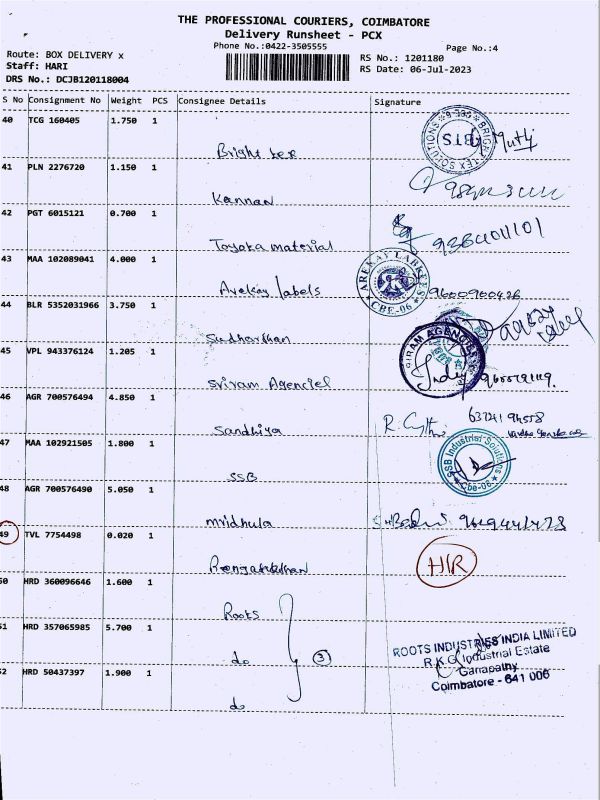 THE PROFESSIONAL COURIERS, COIMBATORE
Delivery Runsheet - PCX
Phone No.:0422-3505555
Page No.:4
Route: BOX DELIVERY x
RS No.: 1201180
Staff: HARI
RS Date: 06-Jul-2023
DRS No.: DCJB120118004
S No Consignment No Weight PCS Consignee Details Signature
40 TCG 160405 1.750 1
Bright tex
BRIGHT TEX SOLUTIONS CBE-6 BTS
41 PLN 2276720 1.150 1
Kannan
42 PGT 6015121 0.700 1
Toyaka material
43 MAA 102089041 4.000 1
labels
AREKAY LABKEES CBE-06
9600900426
44 BLR 5352031966 3.750 1
Sudharthan
45 VPL 943376124 1.205 1
Sriram Agenciel
SRIRAM AGENCIES
46 AGR 700576494 4.850 1
Sandhiya
47 MAA 102921505 1.800 1
SSB
SSB Industrial Solutions Cbe-06
48 AGR 700576490 5.050 1
mridhula
49 TVL 7754498 0.020 1
HR
50 HRD 360096646 1.600 1
Roots
51 HRD 357065985 5.700 1
do
3
52 HRD 50437397 1.900 1
do
ROOTS INDUSTRIES INDIA LIMITED
R.K.G. Industrial Estate
Ganapathy
Coimbatore - 641 006